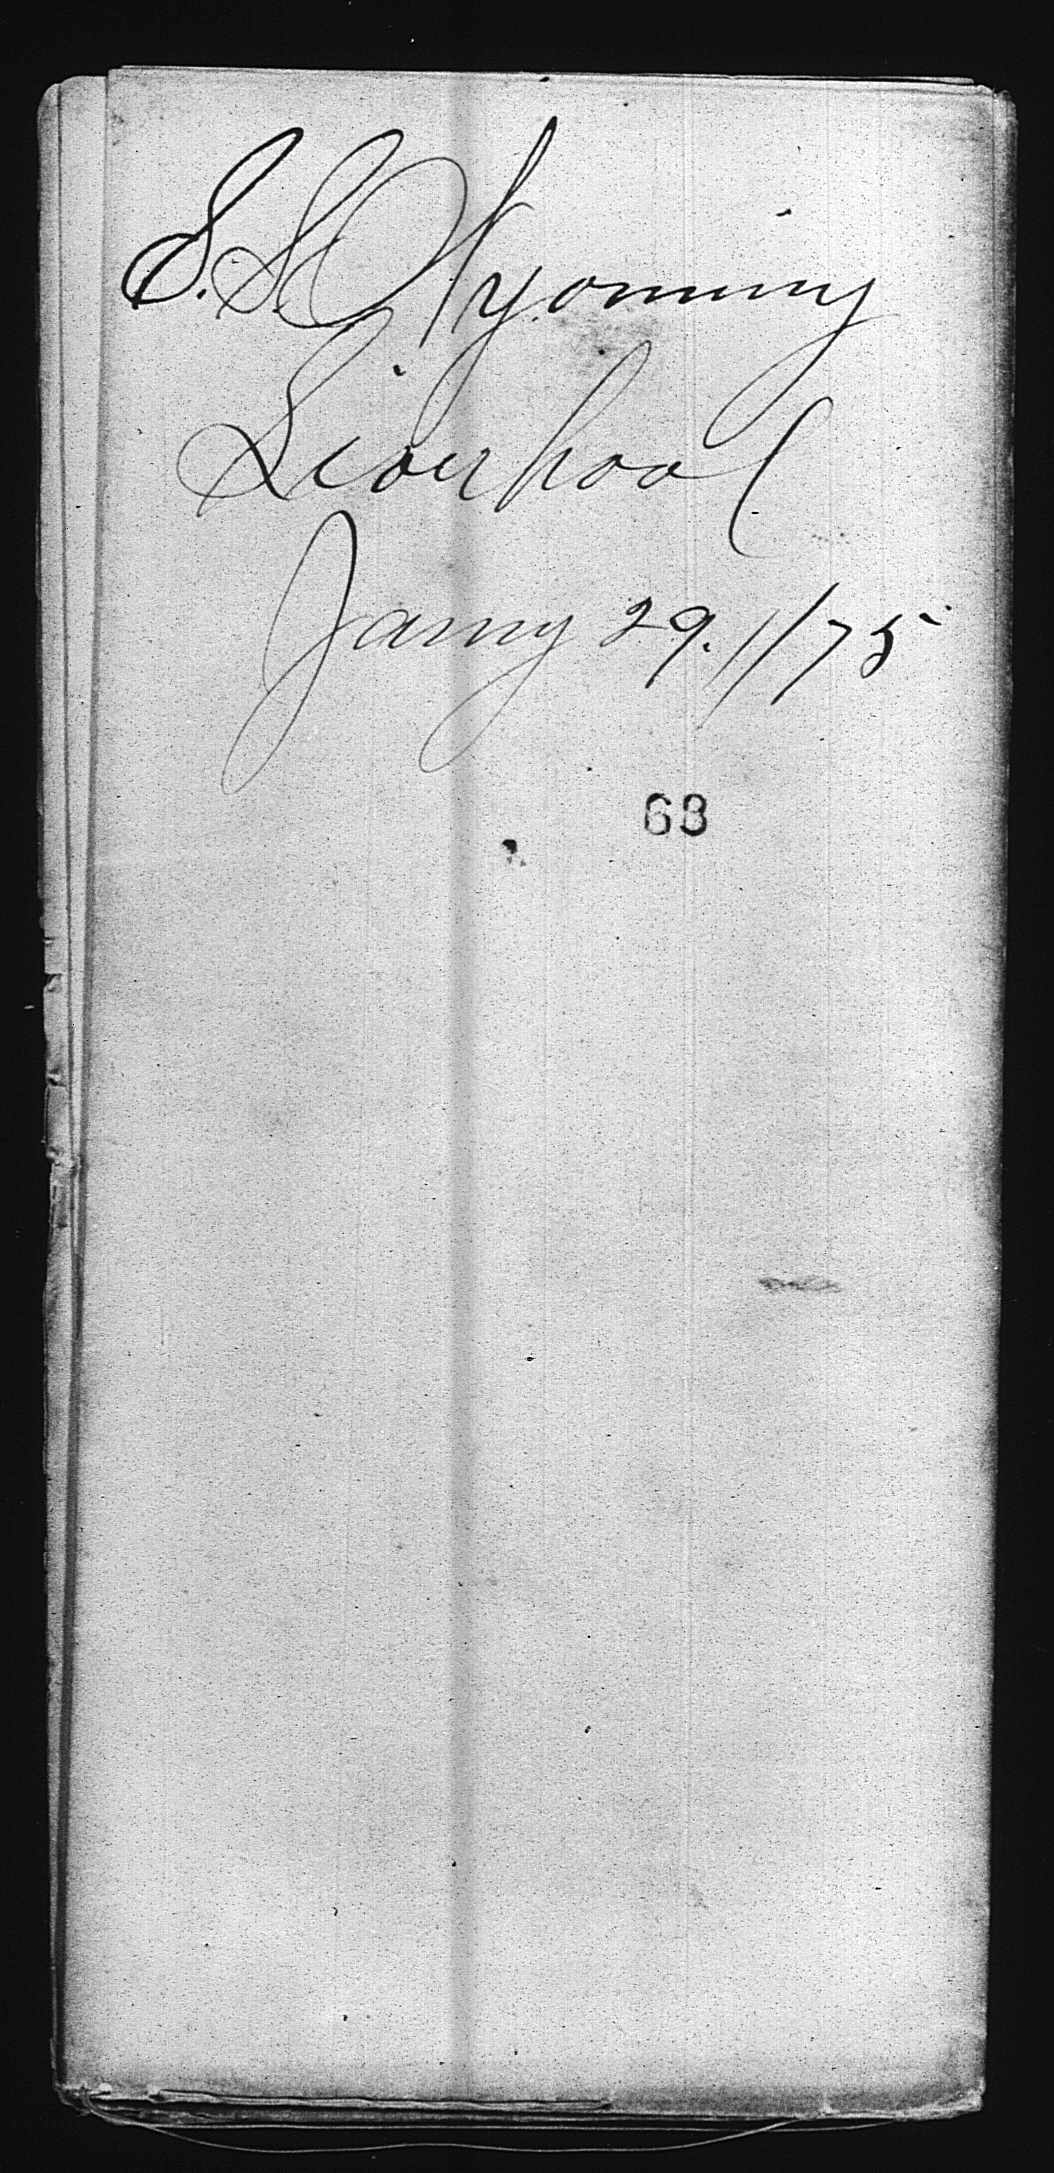 S.S. Wyoming
Liverpool
Jany 29. 1/75
68